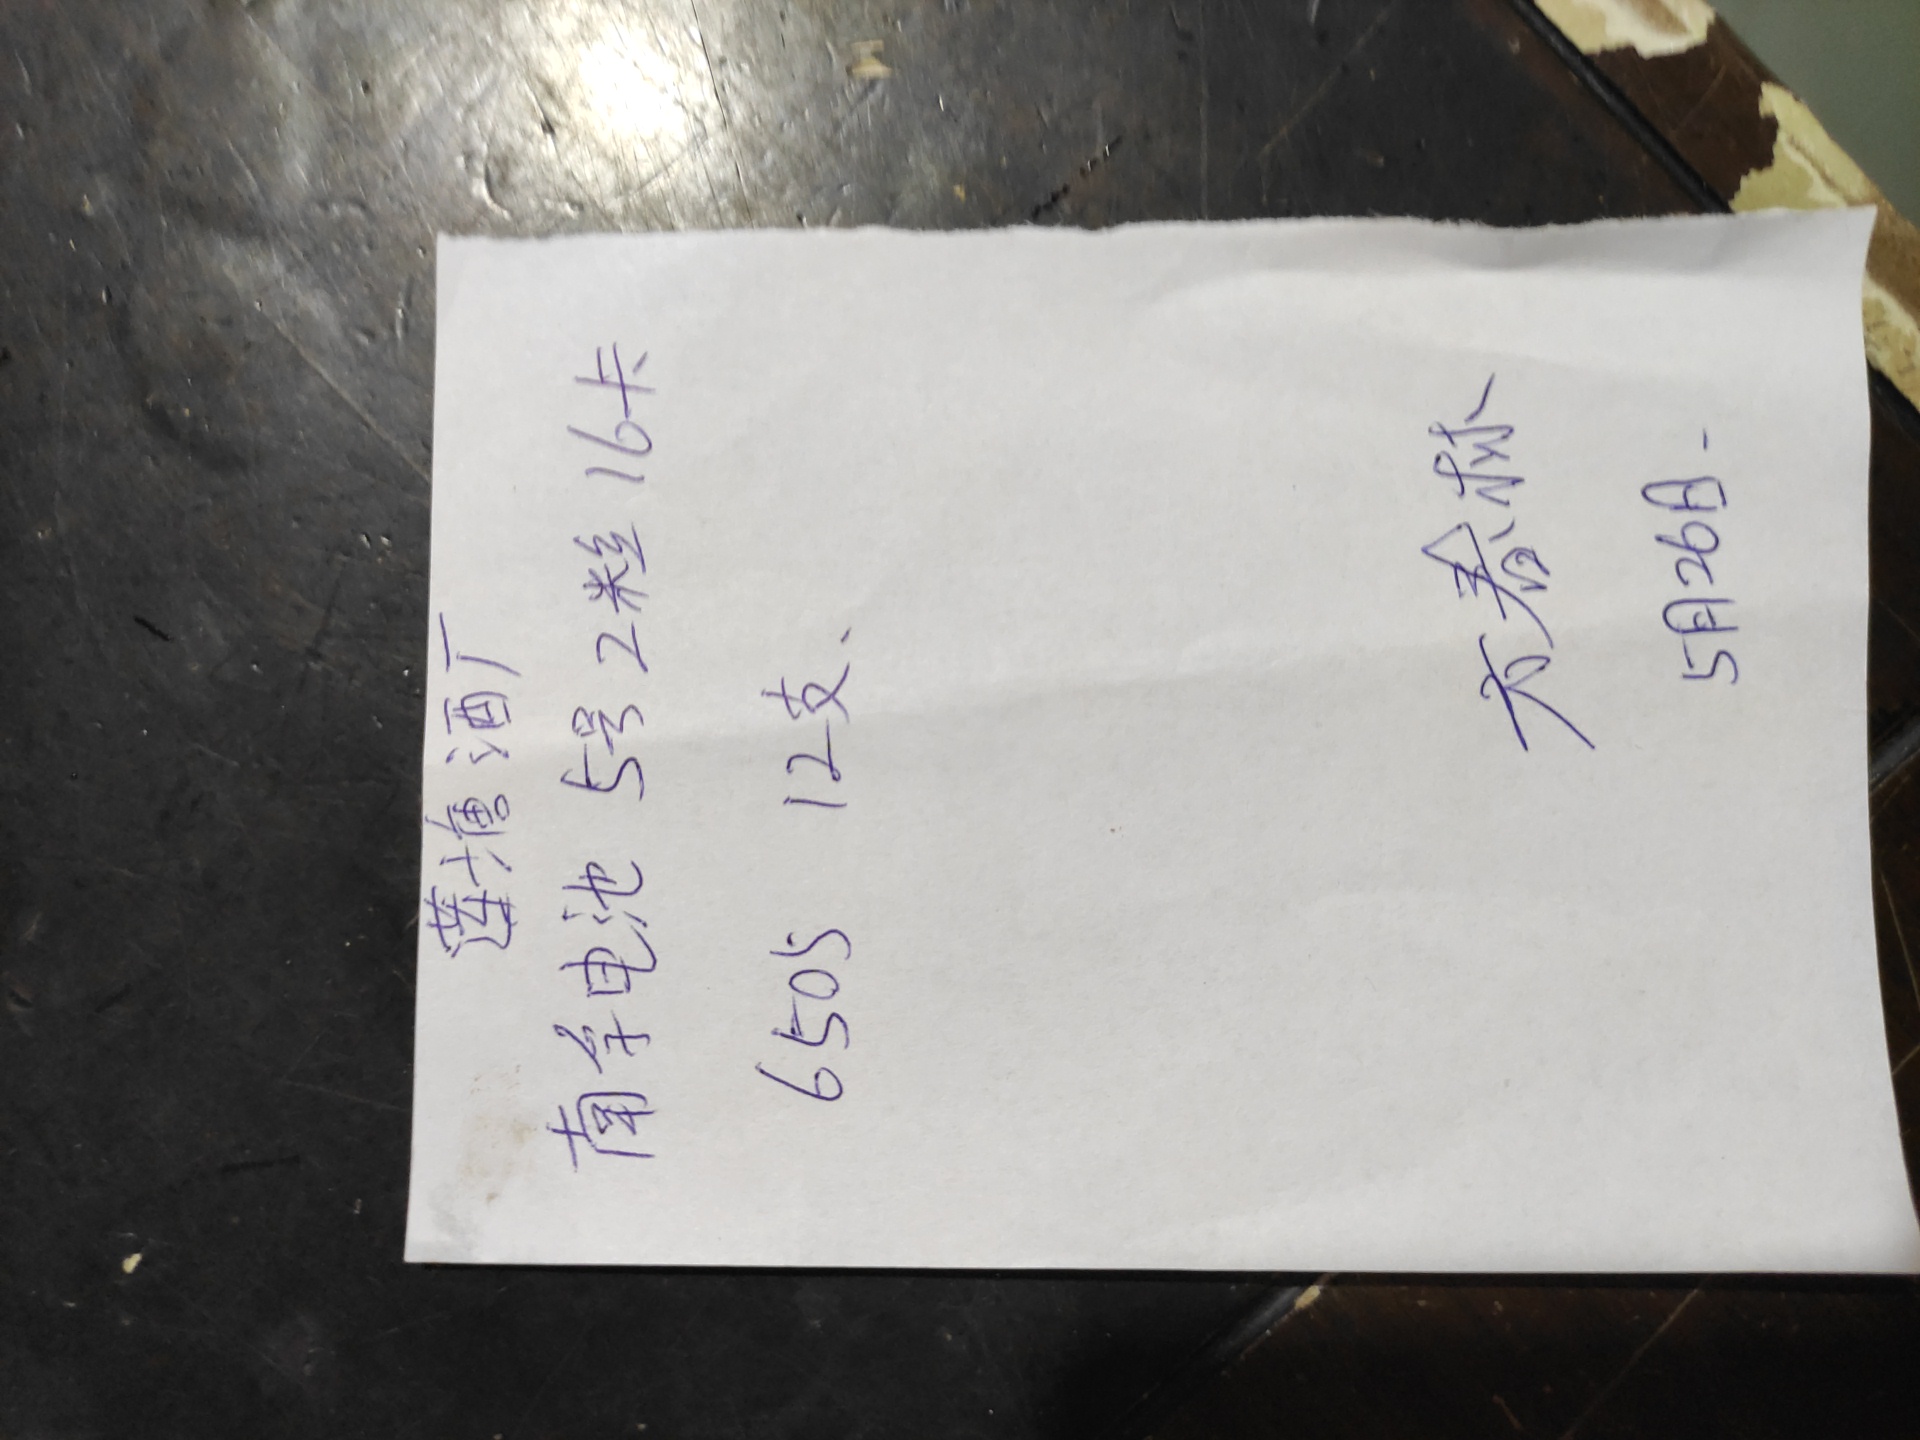 莲塘酒厂
南孚电池 5号2粒 16卡
6505 12支.
5月26日-